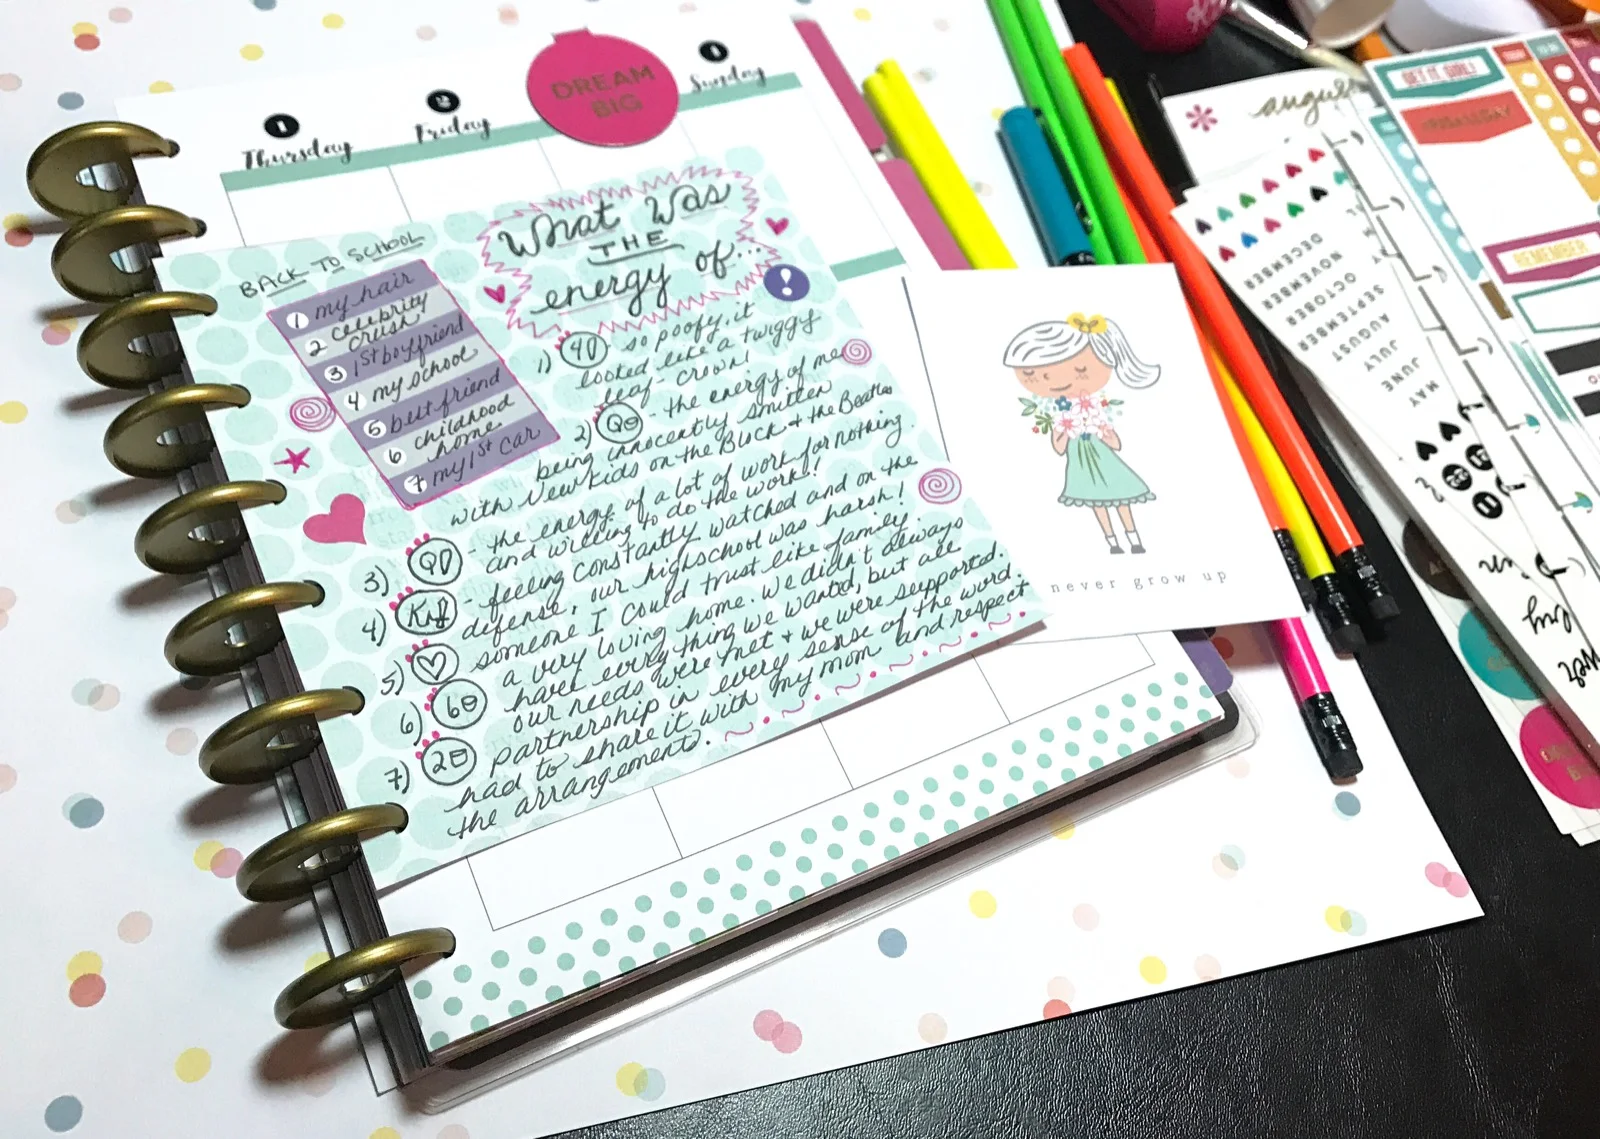 1
Thursday
2
Friday
DREAM
BIG
4
Sunday
BACK TO SCHOOL
1 my hair
2 celebrity
crush
3 1st boyfriend
4 my school
5 best friend
6 childhood
home
7 my 1st car
What was
THE
energy of...
!
1) so poofy, it
looked like a twiggy
leaf-crown!
2) - the energy of me
being innocently smitten
with New Kids on the Block + the Beatles
3) - the energy of a lot of work for nothing.
and willing to do the work!
4) - feeling constantly watched and on the
defense, our highschool was harsh!
5) someone I could trust like family
6) a very loving home. we didn't always
have everything we wanted, but all
our needs were met + we were supported.
7) partnership in every sense of the word.
had to share it with my mom and respect
the arrangements.
never grow up
august
GET IT GIRL!
REMEMBER
DECEMBER
NOVEMBER
OCTOBER
SEPTEMBER
AUGUST
JULY
JUNE
MAY